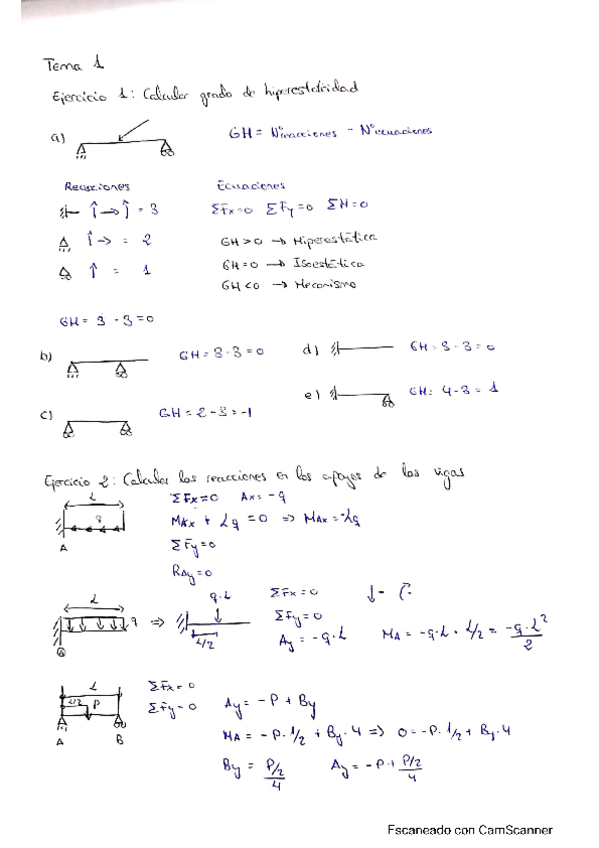 Tema 1
Ejercicio 1: Calcular grado de hiperestaticidad
a) GH = Nºreacciones - Nºecuaciones
Reacciones Ecuaciones
↑ → ⤵ = 3 ΣFx=0 ΣFy=0 ΣM=0
↑ → = 2 GH>0 → Hiperestática
↑ = 1 GH=0 → Isostática
GH<0 → Mecanismo
GH = 3 - 3 = 0
b) GH = 3-3=0 d) GH = 3-3=0
c) GH = 2-3=-1 e) GH: 4-3=1
Ejercicio 2: Calcular las reacciones en los apoyos de las vigas
L ΣFx=0 Ax=-q
q MAx + Lq = 0 => MAx=-Lq
A ΣFy=0
RAy=0
L q => q·L ΣFx=0
ΣFy=0
A L/2 Ay = -q·L MA = -q·L · L/2 = -q·L²/2
L ΣFx=0
L/2 P ΣFy=0 Ay = -P + By
A B MA = -P·1/2 + By·4 => 0=-P·1/2 + By·4
By = P/2/4 Ay = -P+ P/2/4
Escaneado con CamScanner